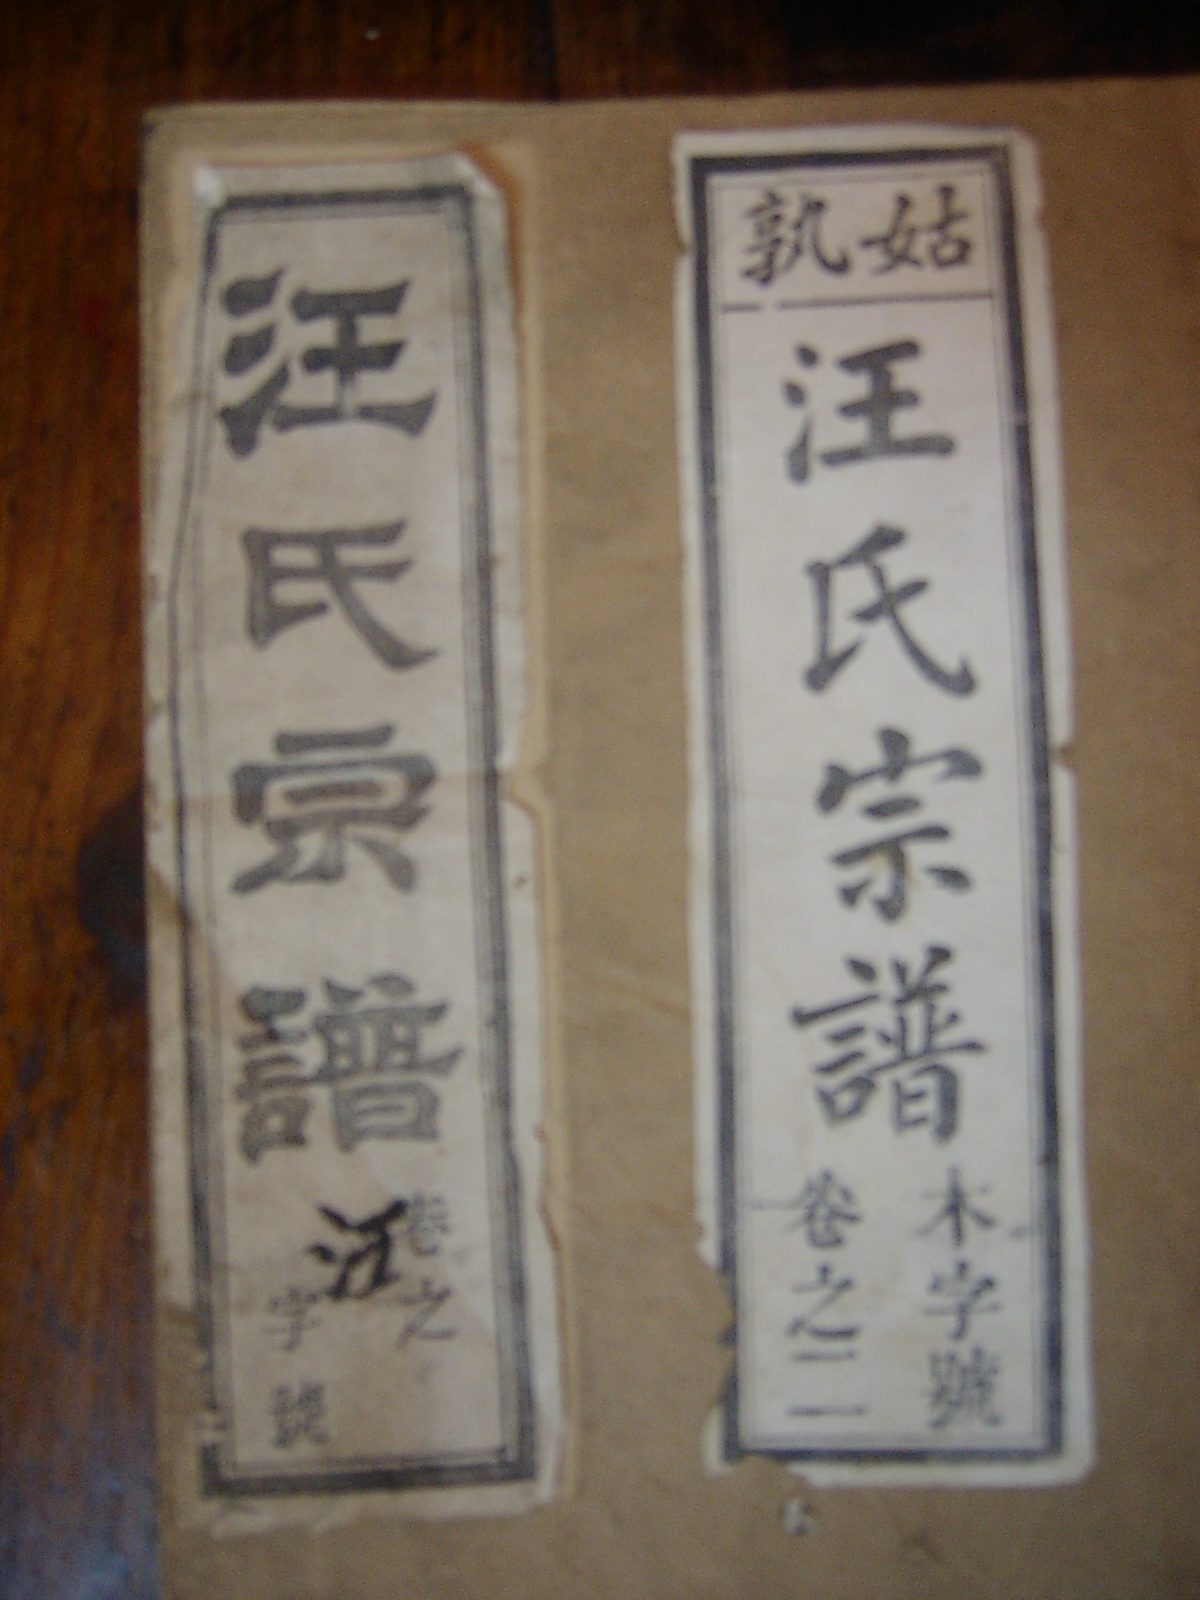 姑孰
汪氏宗譜
木字號
卷之二
汪氏宗譜
卷之
字號